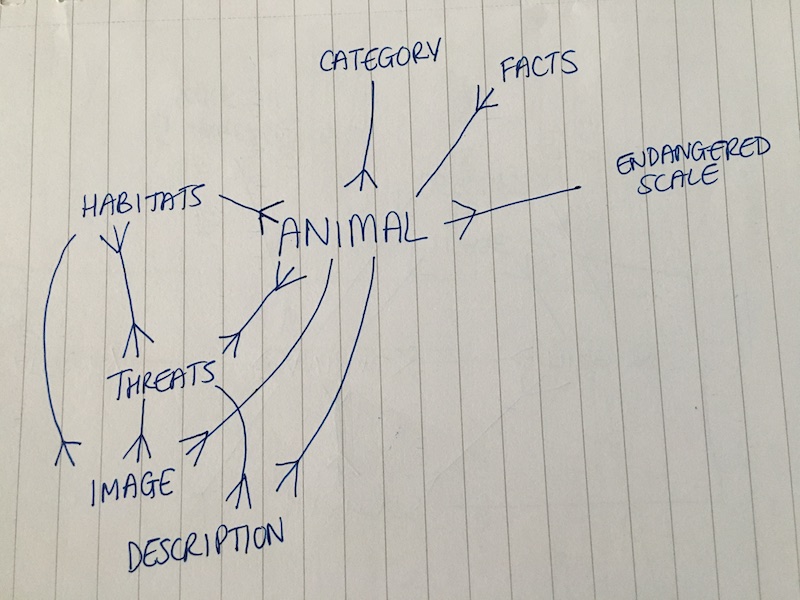 CATEGORY
FACTS
ENDANGERED
SCALE
HABITATS
ANIMAL
THREATS
IMAGE
DESCRIPTION